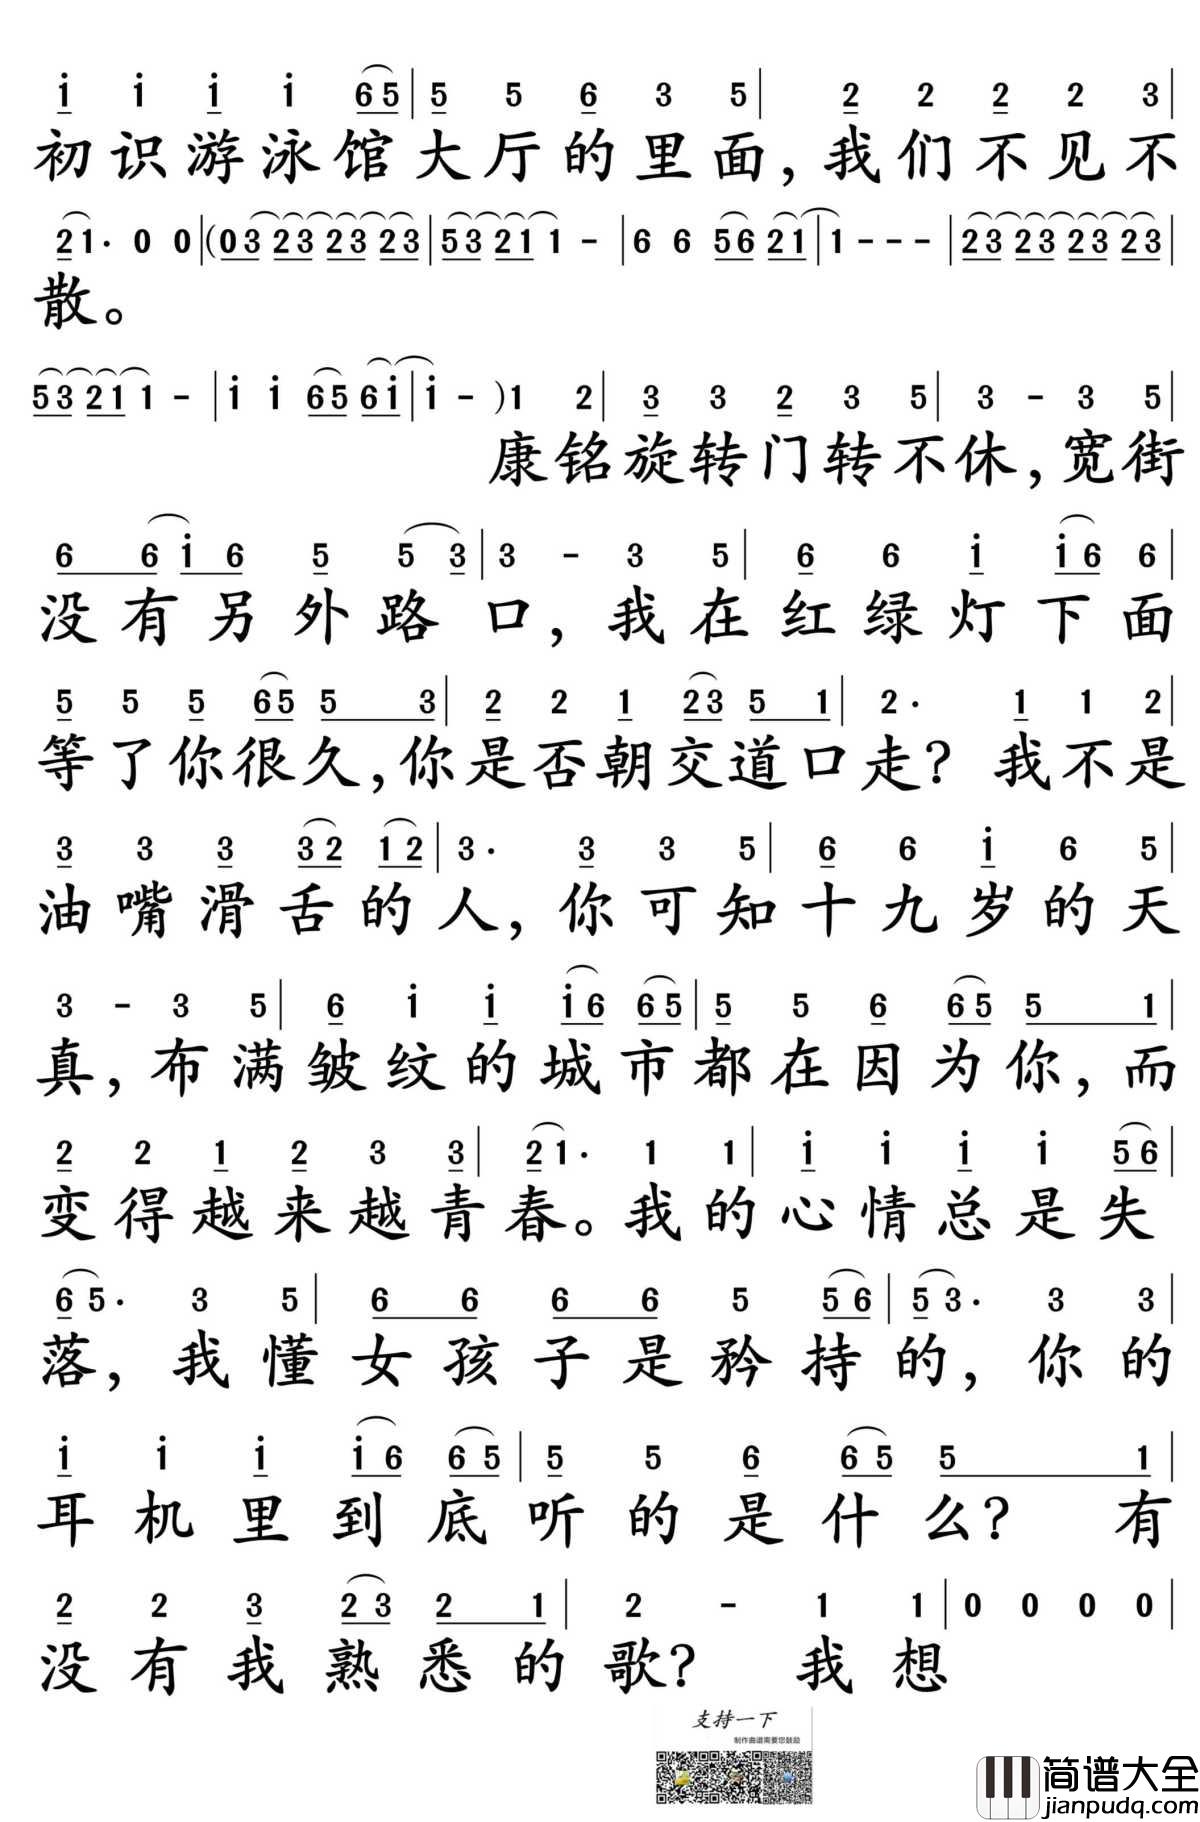 i i i i 65|5 5 6 3 5| 2 2 2 2 3|
初识游泳馆大厅的里面,我们不见不
21· 0 0|(03 23 23 23|53 21 1 -|6 6 56 21|1 - - -|23 23 23 23|
散。
53 21 1 -|i i 65 6i|i - )1 2|3 3 2 3 5|3 - 3 5|
康铭旋转门转不休,宽街
6 6i 6 5 5 3|3 - 3 5|6 6 i i6 6|
没有另外路口,我在红绿灯下面
5 5 5 65 5 3|2 2 1 23 5 1|2· 1 1 2|
等了你很久,你是否朝交道口走?我不是
3 3 3 32 12|3· 3 3 5|6 6 i 6 5|
油嘴滑舌的人,你可知十九岁的天
3 - 3 5|6 i i i6 65|5 5 6 65 5 1|
真,布满皱纹的城市都在因为你,而
2 2 1 2 3 3|21· 1 1|i i i i 56|
变得越来越青春。我的心情总是失
65· 3 5|6 6 6 6 5 56|53· 3 3|
落,我懂女孩子是矜持的,你的
i i i i6 65|5 5 6 65 5 1|
耳机里到底听的是什么?有
2 2 3 23 2 1|2 - 1 1|0 0 0 0|
没有我熟悉的歌?我想
支持一下
制作曲谱需要您鼓励
简谱大全
jianpudq.com